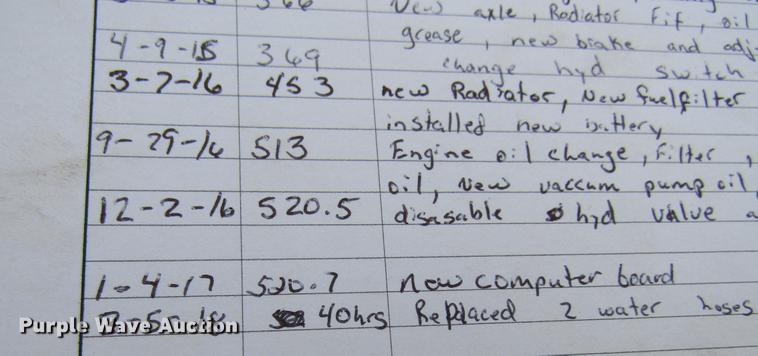 366 New axle, Radiator Fif, oil
4-9-15 369 grease, new brake and adj-
change hyd switch
3-7-16 453 new Radiator, New fuelfilter
installed new battery
9-29-16 513 Engine oil change, Filter,
oil, New vaccum pump oil,
12-2-16 520.5 disasable hyd value a
1-4-17 520.7 New computer board
40hrs Replaced 2 water hoses
Purple Wave Auction